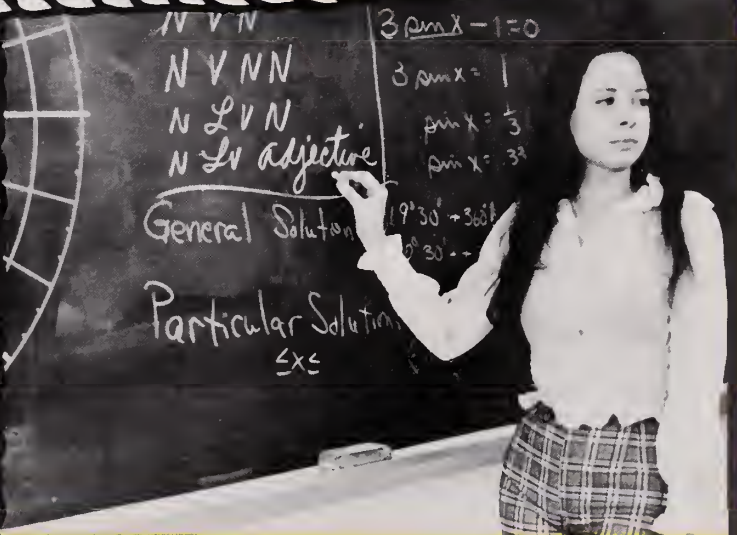 N V N
N V N N
N LV N
N Lv adjective
General Solution
Particular Solution
≤x≤
3 sin x - 1 = 0
3 sin x = 1
sin x = 1/3
sin x =
19°30' + 360°
30' +